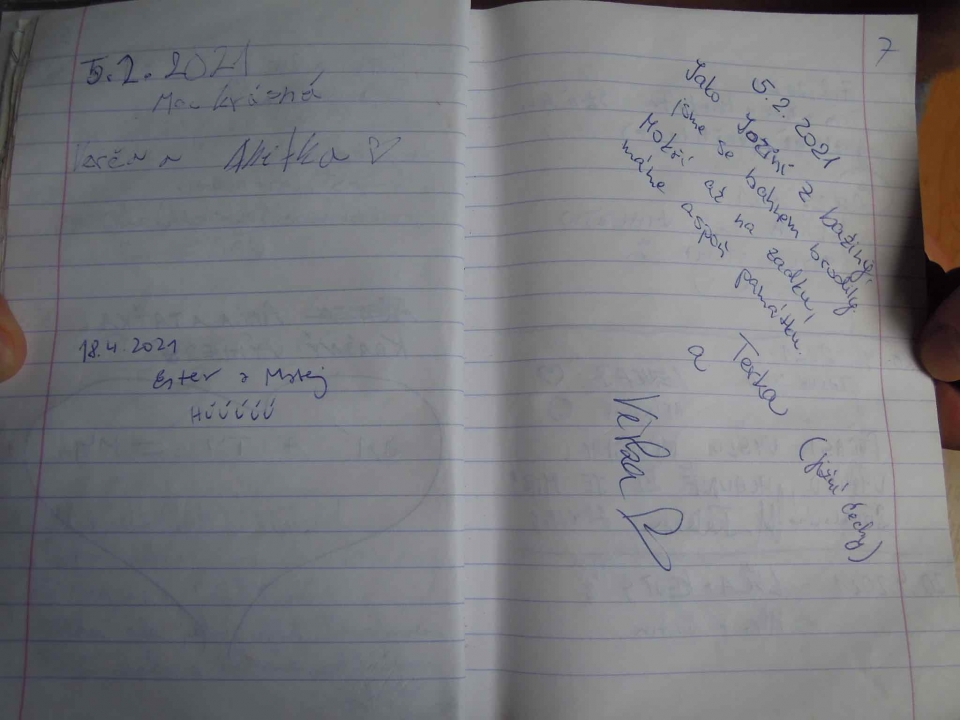 5.2.2021
Moc krásná
Anitka ♡
18.4.2021
Ester a Matěj
HÚÚÚÚÚ
7
5.2.2021
Jako Jožini z bažiny,
jsme se bahnem brodily
Mokří až na zadku,
máme aspoň památku.
Terka
a
Verka
(jižní Čechy)